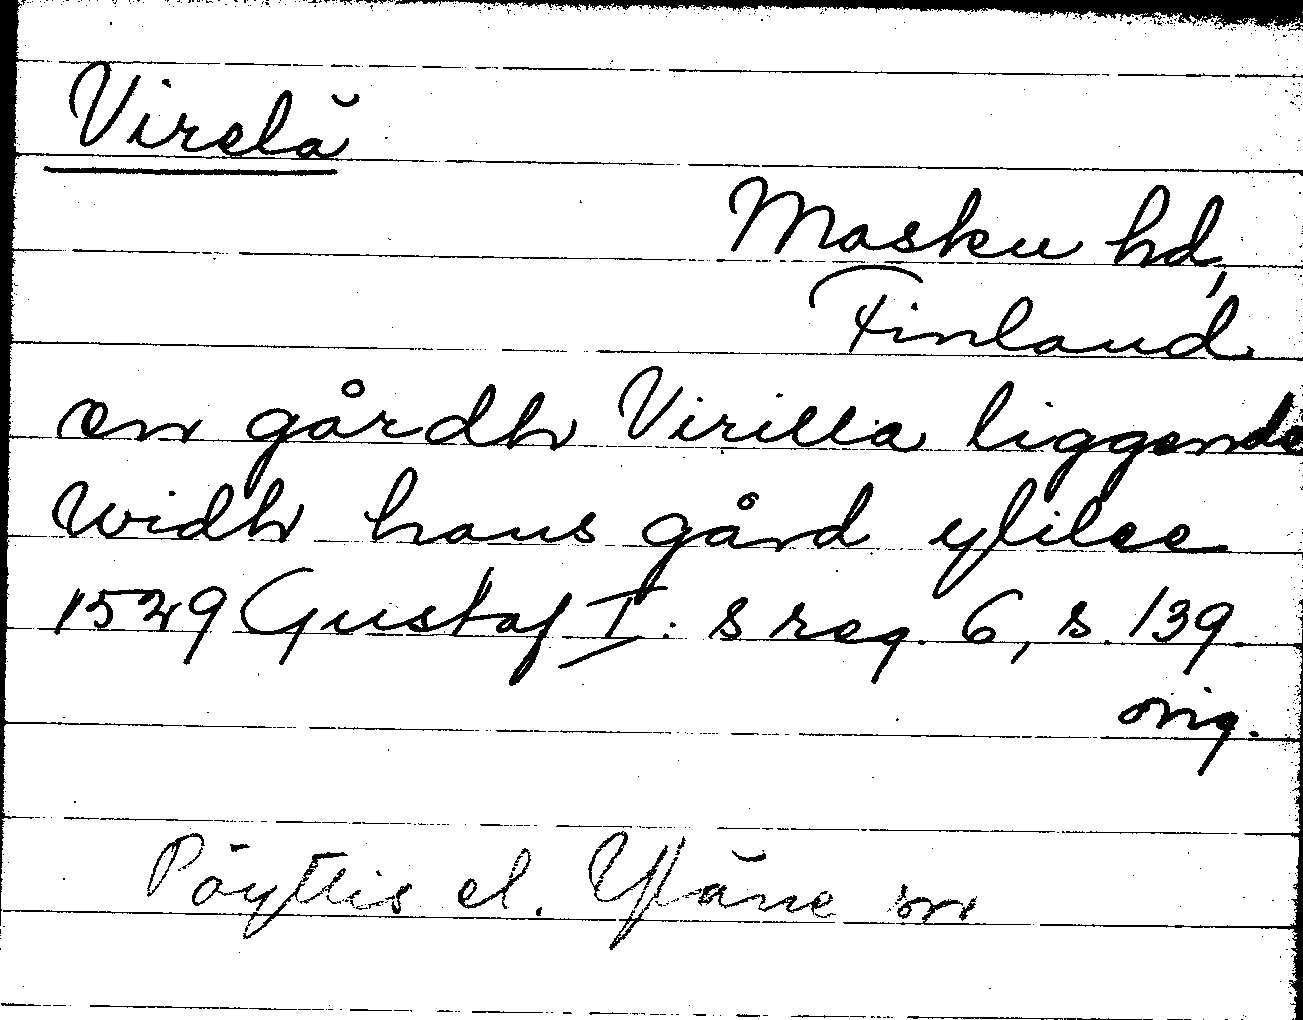 Virelä
Masku hd,
Finland
en gårdh Virilla liggende
widh hans gård ylilee
1529 Gustaf I: s reg. 6, s. 139
orig.
Pöyttis el. Yläne sn